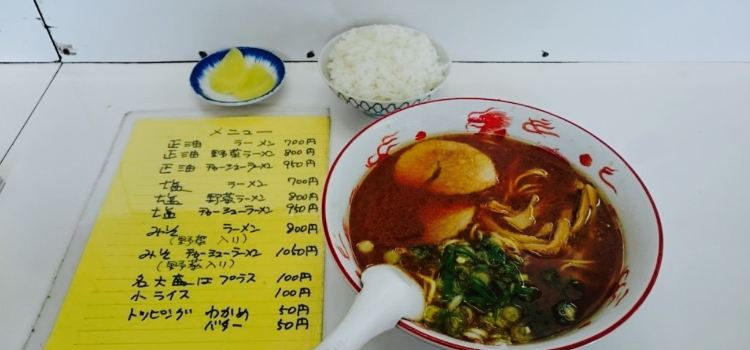 メニュー
正油 ラーメン 700円
正油 野菜ラーメン 800円
正油 チャーシューラーメン 950円
塩 ラーメン 700円
塩 野菜ラーメン 800円
塩 チャーシューラーメン 950円
みそ ラーメン 800円
(野菜入り)
みそ チャーシューラーメン 1050円
(野菜入り)
各大盛はプラス 100円
小ライス 100円
トッピング わかめ 50円
バター 50円